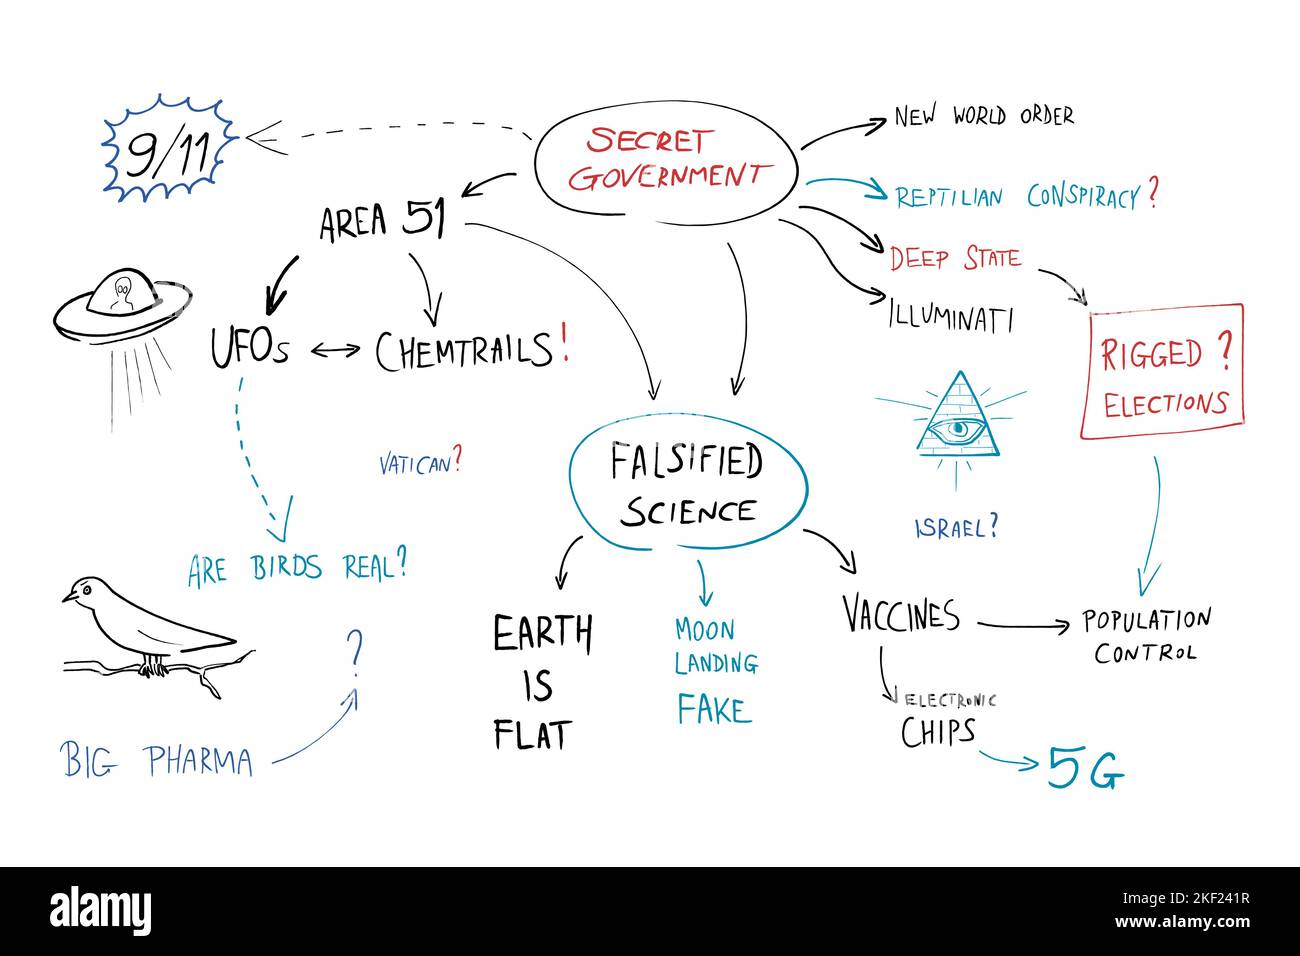 9/11
SECRET
GOVERNMENT
NEW WORLD ORDER
REPTILIAN CONSPIRACY?
DEEP STATE
ILLUMINATI
AREA 51
UFOs
CHEMTRAILS!
RIGGED?
ELECTIONS
VATICAN?
FALSIFIED
SCIENCE
ISRAEL?
ARE BIRDS REAL?
EARTH
IS
FLAT
MOON
LANDING
FAKE
VACCINES
POPULATION
CONTROL
?
ELECTRONIC
CHIPS
BIG PHARMA
5G
alamy
Image ID: 2KF241R
www.alamy.com